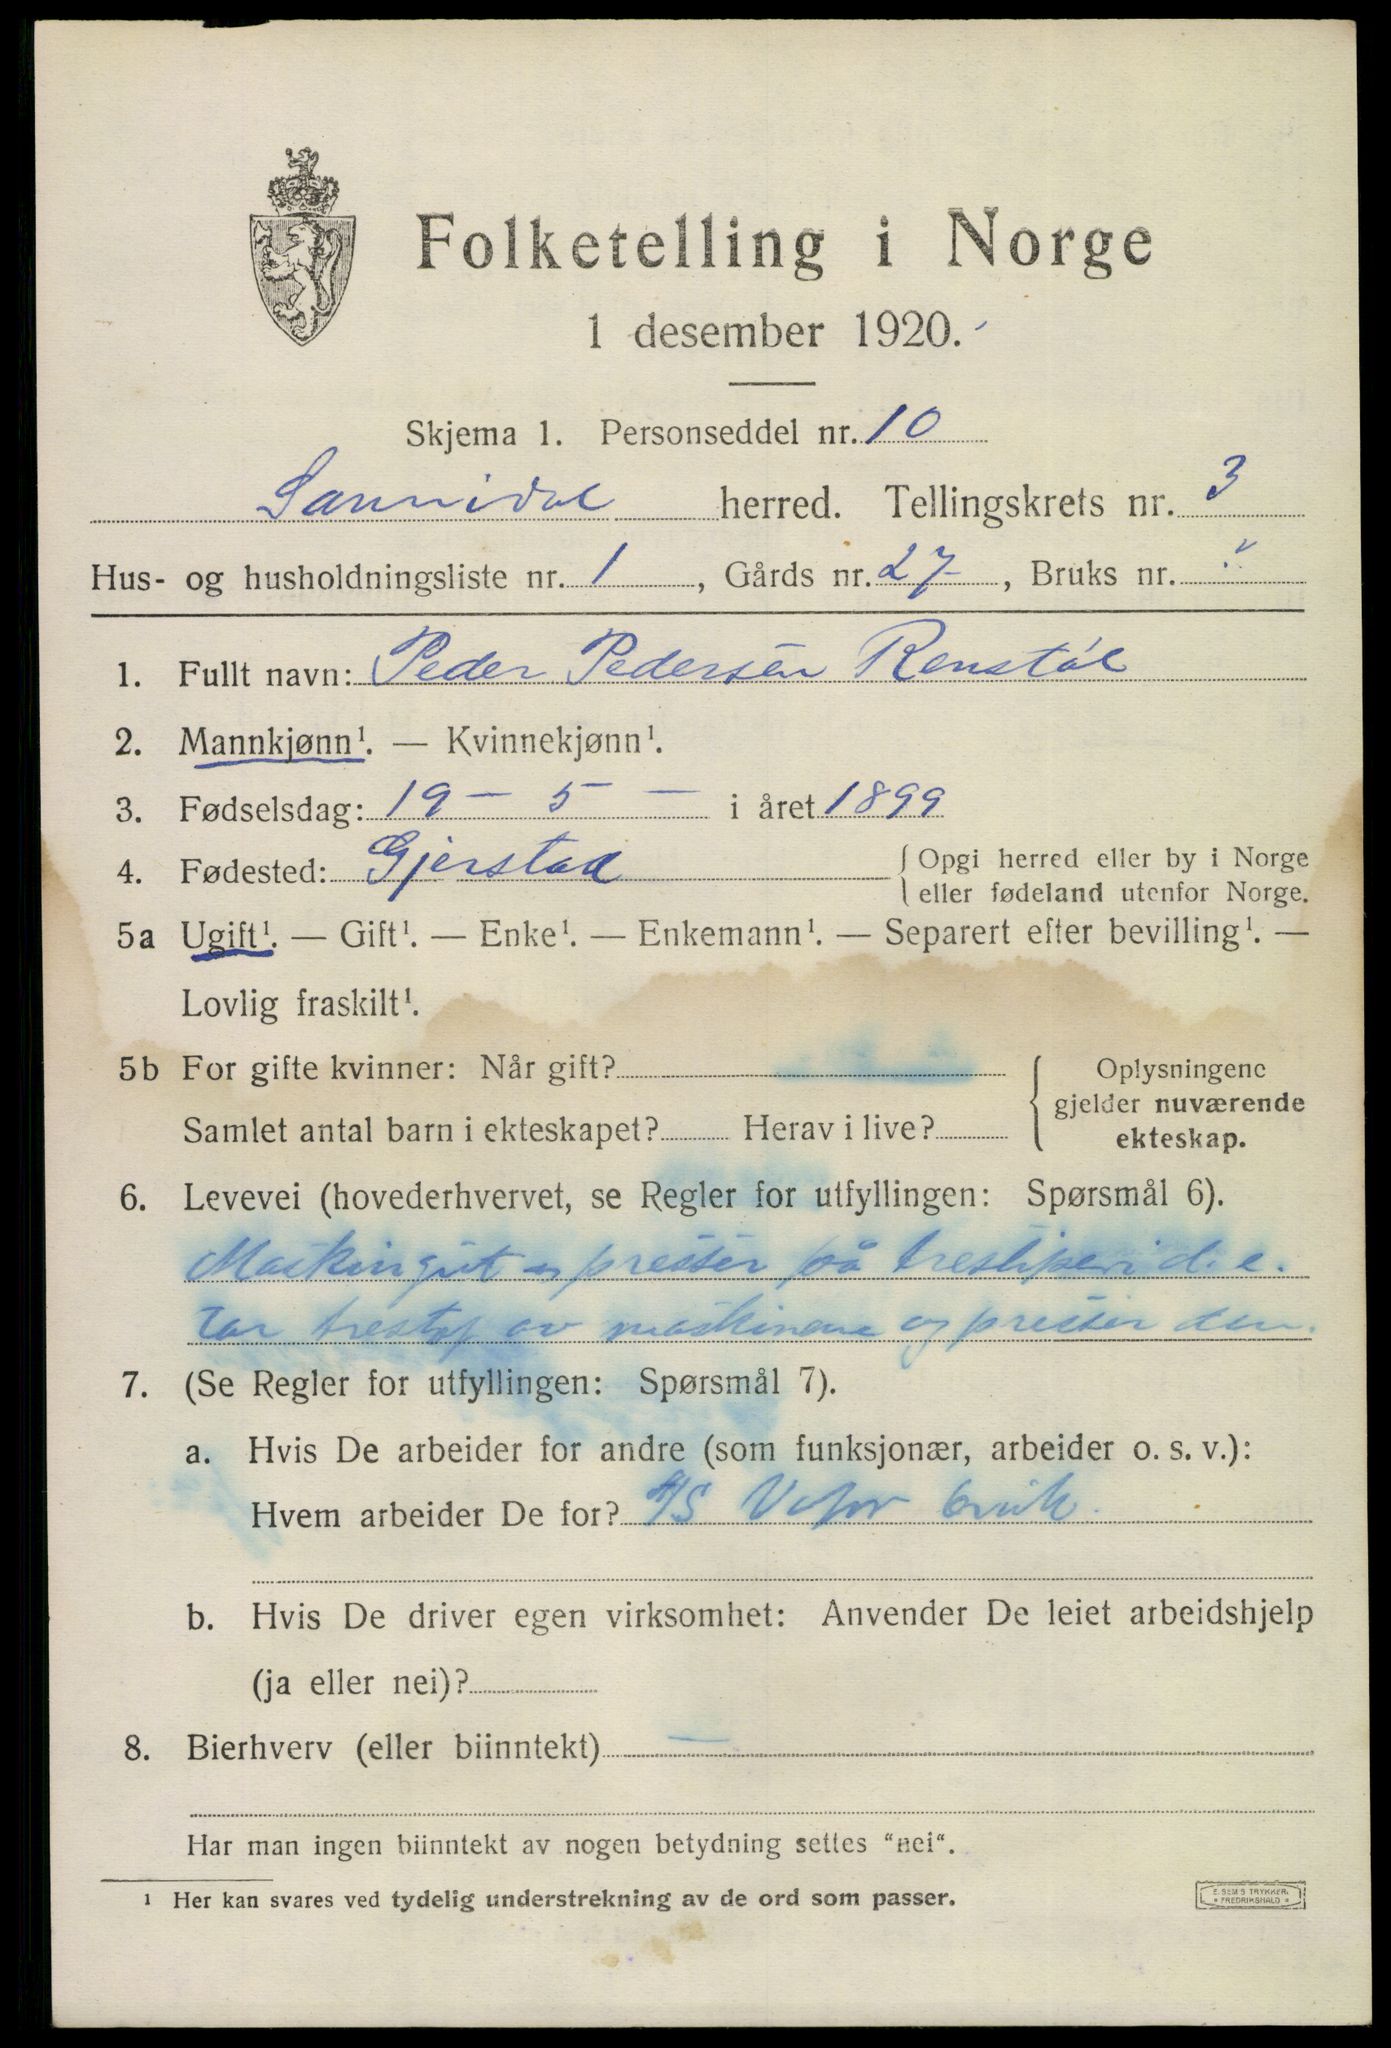 Folketelling i Norge
1 desember 1920.
Skjema 1. Personseddel nr. 10
Sannidal herred. Tellingskrets nr. 3
Hus- og husholdningsliste nr. 1, Gårds nr. 27, Bruks nr.
1. Fullt navn: Peder Pedersen Renstøl
2. Mannkjønn¹. — Kvinnekjønn¹.
3. Fødselsdag: 19 — 5 — i året 1899
4. Fødested: Gjerstad { Opgi herred eller by i Norge
eller fødeland utenfor Norge.
5a Ugift¹. — Gift¹. — Enke¹. — Enkemann¹. — Separert efter bevilling¹. —
Lovlig fraskilt¹.
5b For gifte kvinner: Når gift?
Samlet antal barn i ekteskapet? Herav i live?
{ Oplysningene
gjelder nuværende
ekteskap.
6. Levevei (hovederhvervet, se Regler for utfyllingen: Spørsmål 6).
Maskingut og presser på tresliperi d. e.
tar av maskinene og presser den.
7. (Se Regler for utfyllingen: Spørsmål 7).
a. Hvis De arbeider for andre (som funksjonær, arbeider o. s. v.):
Hvem arbeider De for? A/S Vafos bruk.
b. Hvis De driver egen virksomhet: Anvender De leiet arbeidshjelp
(ja eller nei)?
8. Bierhverv (eller biinntekt) —
Har man ingen biinntekt av nogen betydning settes "nei".
¹ Her kan svares ved tydelig understrekning av de ord som passer.
E. SEM'S TRYKKERI
FREDRIKSHALD